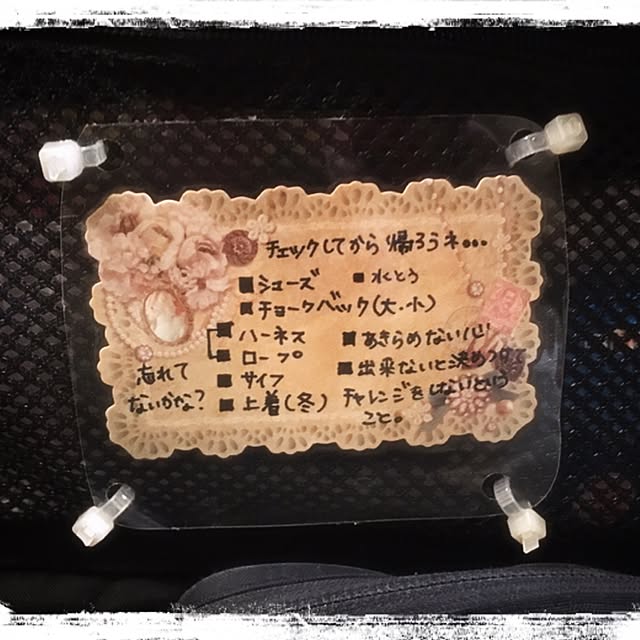 チェックしてから 帰ろうネ...
■シューズ ■水とう
■チョークベック(大・小)
■ハーネス ■あきらめない心!
■ロープ ■出来ないと決めつけて
忘れて ■サイフ チャレンジをしないという
ないかな? ■上着(冬) こと。